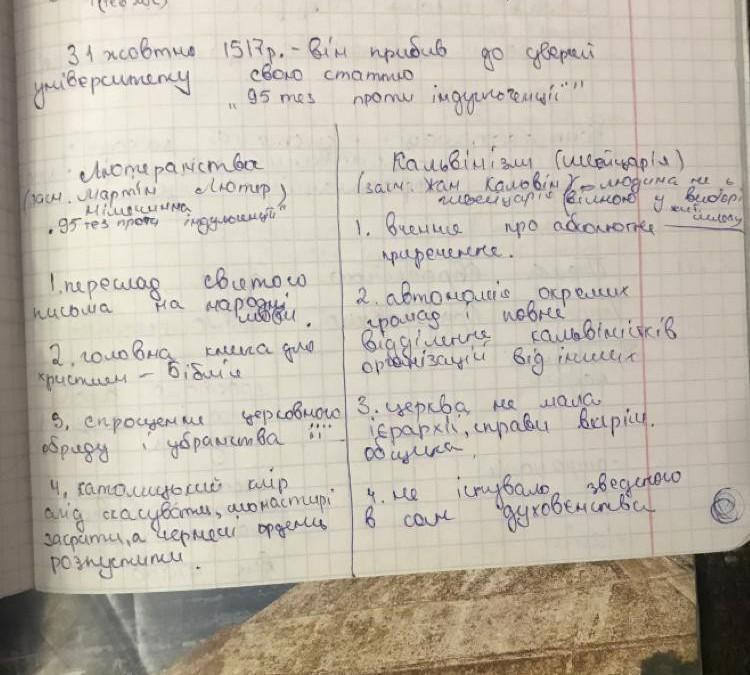 31 жовтня 1517р. - він прибив до дверей
університету свою статтю
"95 тез проти індульгенції"
Лютеранство
(засн. Мартін Лютер,
Німеччина
"95 тез проти індульгенцій"
1. переклад святого
письма на народні
мови.
2. головна книга для
християн - Біблія
3. спрощення церковного
обряду і убранства її
4. католицький клір
слід скасувати, монастирі
закрити, а чернечі ордени
розпустити.
Кальвінізм (Швейцарія)
(засн. Жан Кальвін) - людина не є
Швейцарія вільною у виборі
1. вчення про абсолютне
приречення.
2. автономія окремих
громад і повне
відділення кальвіністків
організацій від інших
3. церква не мала
ієрархії, справи виріш.
община.
4. не існувало зведеного
в сан духовенства